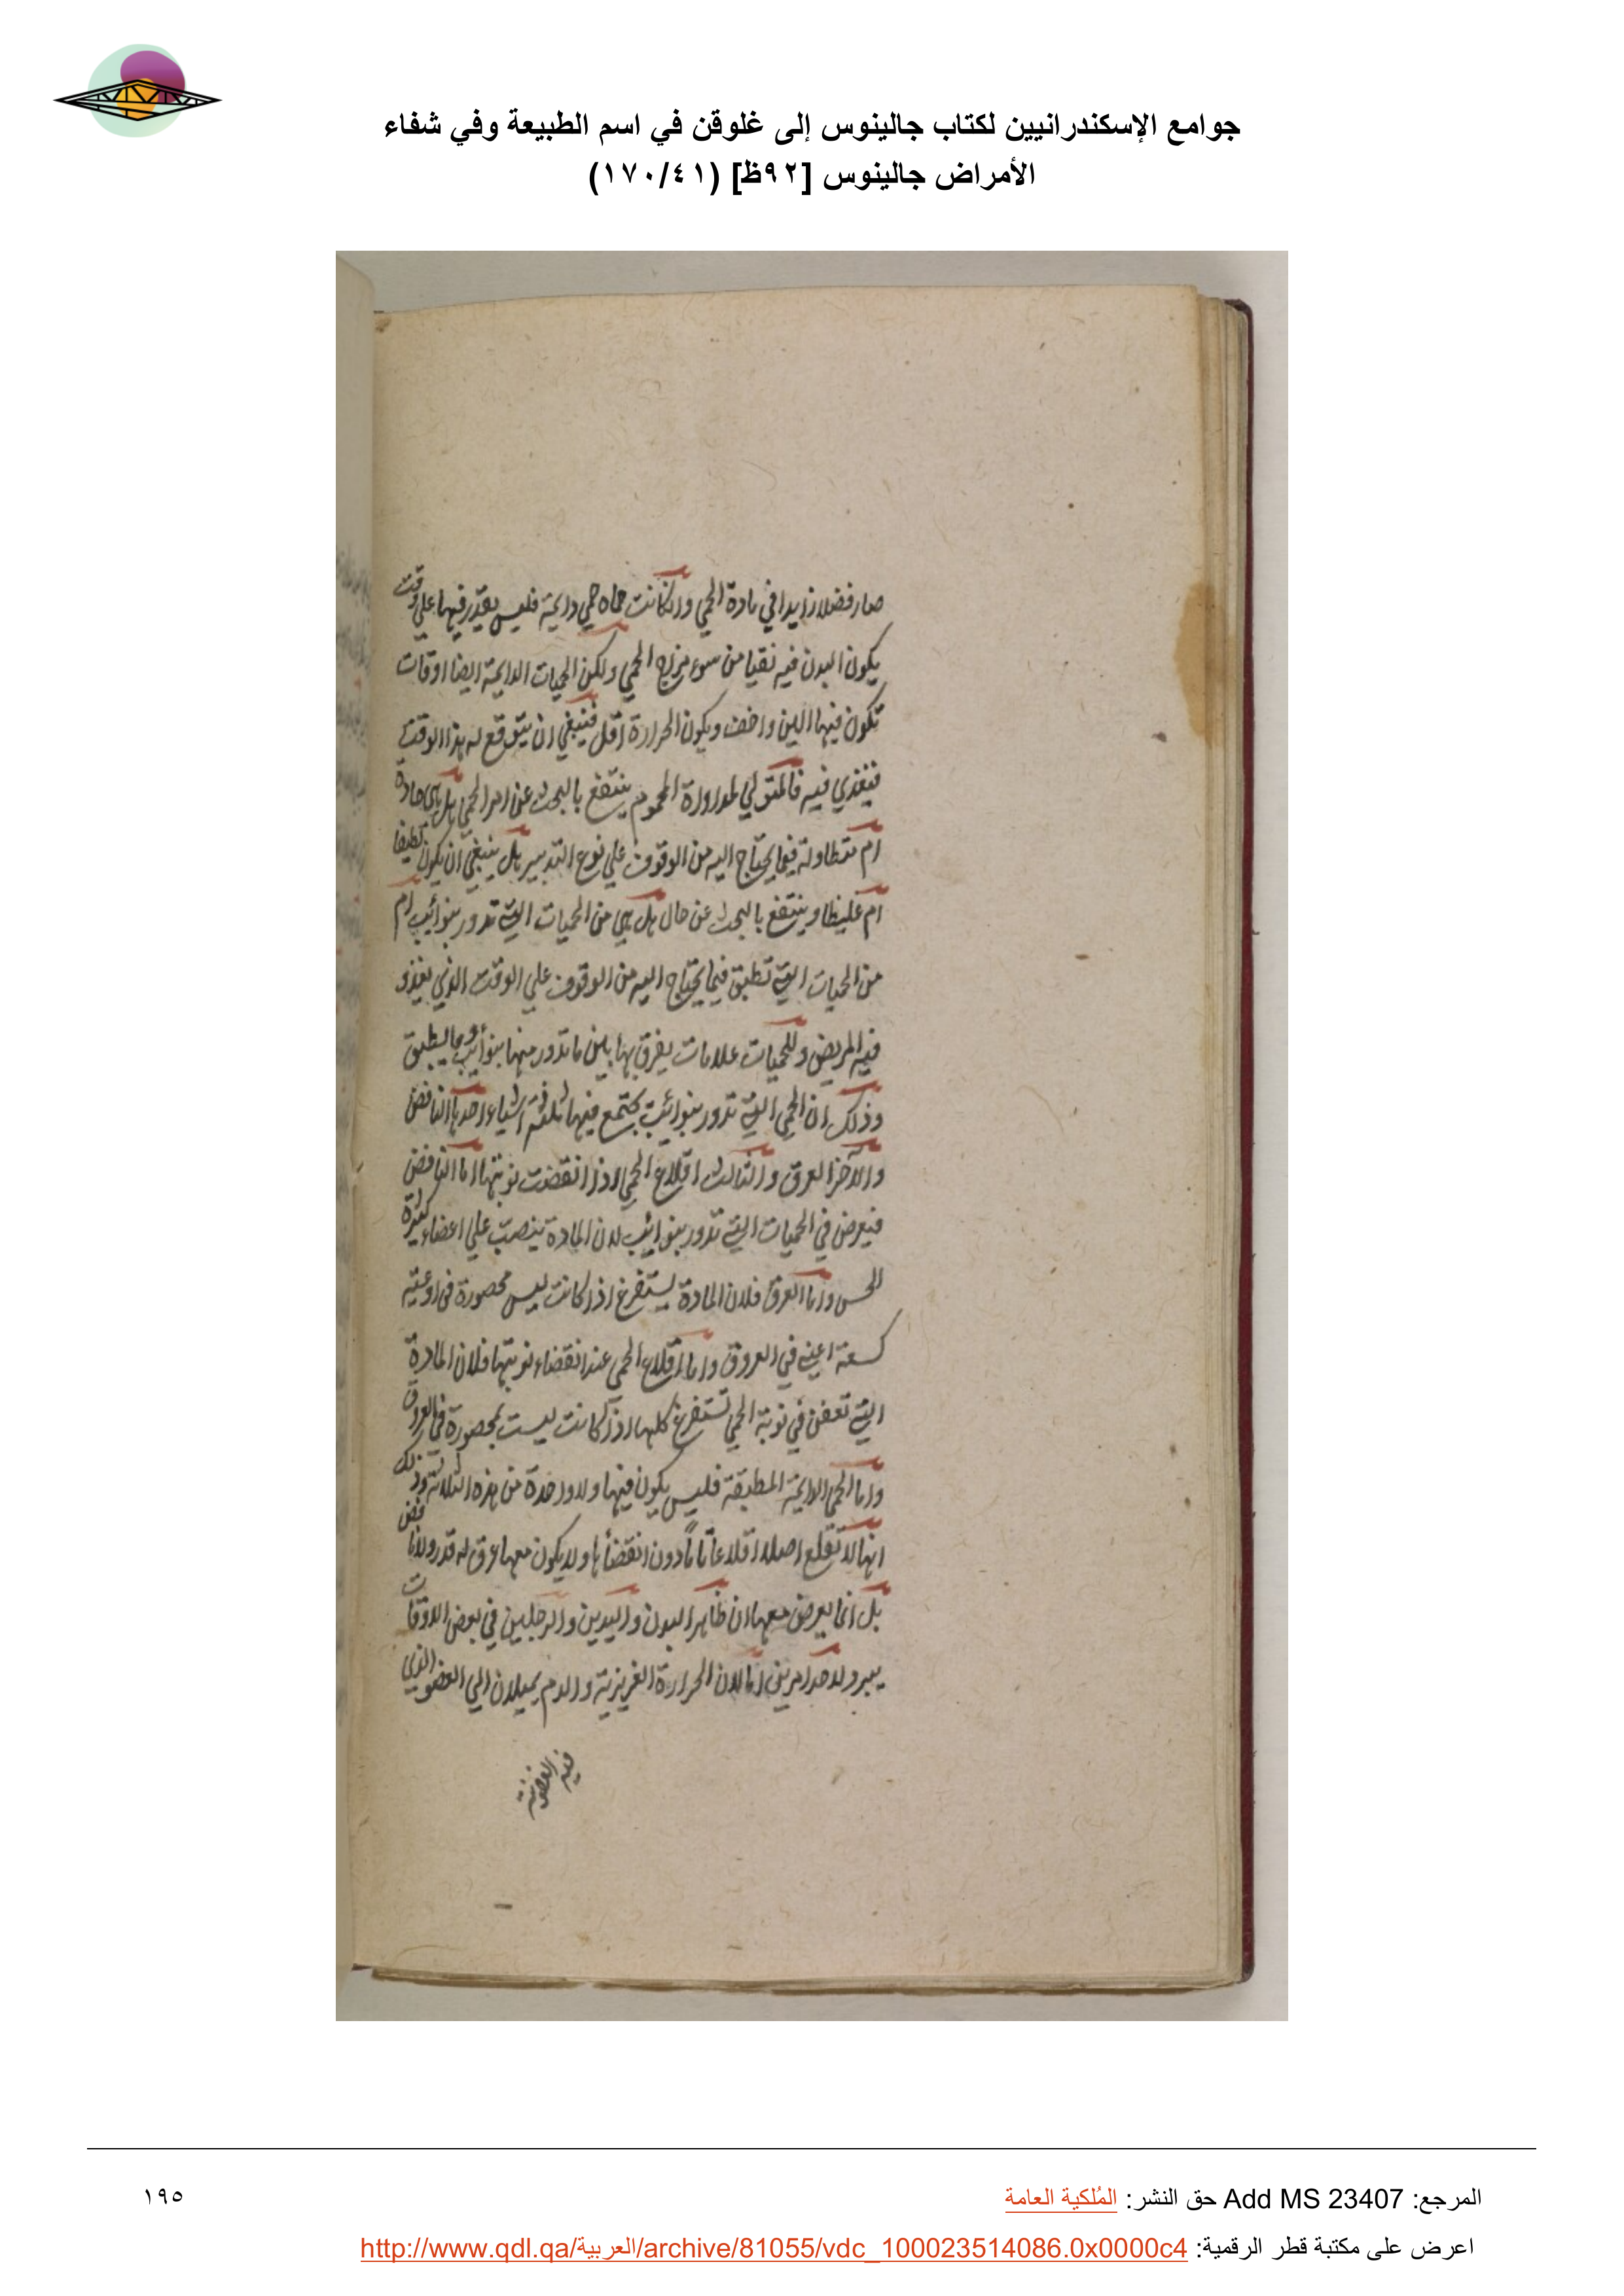 جوامع الإسكندرانيين لكتاب جالينوس إلى غلوقن في اسم الطبيعة وفي شفاء
الأمراض جالينوس [٩٢ظ] (١٧٠/٤١)
صار فضلا زايدا في مادة الحمي وان كانت حماه حمي دايمة فليس يقدر فيها علي وقت
يكون البدن فيه نقيا من سوء مزاج الحمي ولكن الحميات الدايمة ايضا اوقات
تكون فيها الين واخف ويكون الحرارة اقل فينبغي ان يتوقع له هذا الوقت
فيغذي فيه فالمتولي لمداواة المحموم ينتفع بالبحث عن امر الحمي هل هي حادة
ام متطاولة فيما يحتاج اليه من الوقوف علي نوع التدبير هل ينبغي ان يكون لطيفا
ام غليظا وينتفع بالبحث عن حال هل هي من الحميات التي تدور بنوائب ام
من الحميات التي تطبق فيما يحتاج اليه من الوقوف علي الوقت الذي يغذو
فيه المريض وللحميات علامات يفرق بها بين ما تدور منها بنوائب وما يطبق
وذلك ان الحمي التي تدور بنوائب يجتمع فيها ثلثة اشياء احدها النافض
والآخر العرق والثالث اقلاع الحمي اذا انقضت نوبتها اما النافض
فيعرض في الحميات التي تدور بنوائب لان المادة ينصب علي اعضاء كثيرة
الحس واما العرق فلان المادة يستفرغ اذا كانت ليس محصورة في اوعية
كسعة اعني في العروق واما اقلاع الحمي عند انقضاء نوبتها فلان المادة
التي تعفن في نوبة الحمي تستفرغ كلها اذا كانت ليست بمحصورة في العروق
واما الحمي الدايمة المطبقة فليس يكون فيها ولا واحدة من هذه الثلاثة وذلك
انها لا تقلع اصلا اقلاعا تاما دون انقضائها ولا يكون معها عرق له قدر ولا نافض
بل انما يعرض معها ان ظاهر البدن واليدين والرجلين في بعض الاوقات
يبرد لاحد امرين اما لان الحرارة الغريزية والدم يميلان الي العضو الذي
فيه العفونة
المرجع: Add MS 23407 حق النشر: المُلكية العامة
١٩٥
اعرض على مكتبة قطر الرقمية: http://www.qdl.qa/العربية/archive/81055/vdc_100023514086.0x0000c4